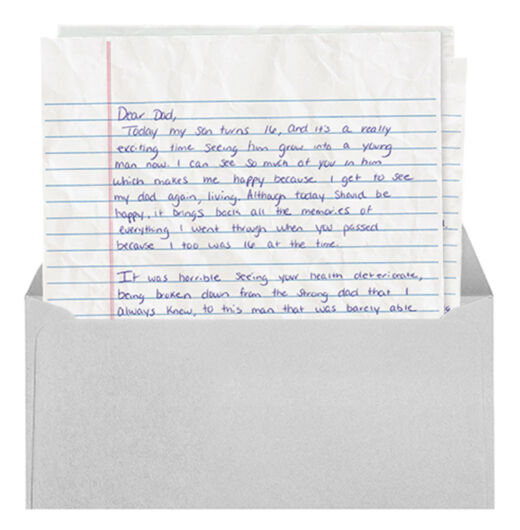 Dear Dad,
Today my son turns 16, and it's a really
exciting time seeing him grow into a young
man now. I can see so much of you in him
which makes me happy because I get to see
my dad again, living. Although today should be
happy, it brings back all the memories of
everything I went through when you passed
because I too was 16 at the time.
It was horrible seeing your health deteriorate,
being broken down from the strong dad that I
always knew, to this man that was barely able